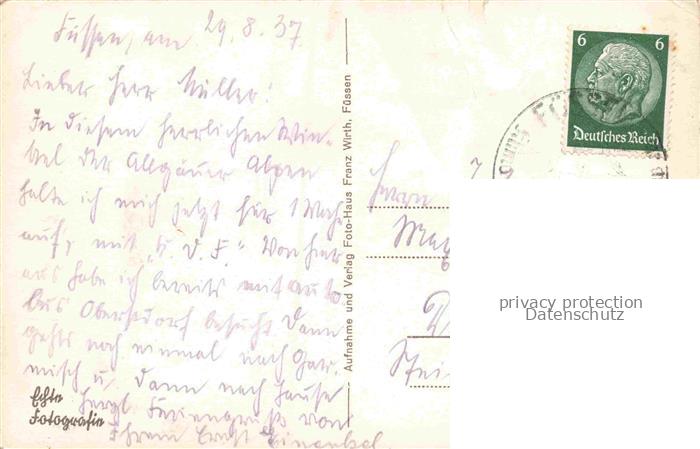 Füssen, am 29.8.37
Lieber Herr Müller!
In diesem herrlichen Win-
kel der Allgäuer Alpen
halte ich mich jetzt für 1 Woche
auf, mit „K. d. F." Von hier
aus habe ich bereits mit Auto
bus Oberstdorf besucht. Dann
gehts noch einmal nach Gar-
misch u. dann nach Hause
Herzl. Feriengrüße von
Ihrem Ernst
Echte
Fotografie
Aufnahme und Verlag Foto-Haus Franz Wirth, Füssen
6 6
Deutsches Reich
Herrn
privacy protection
Datenschutz